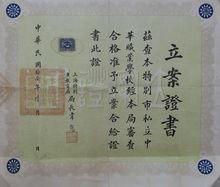 立案證書
茲查本特別市私立中
華職業學校經本局審查
合格准予立案合給證
書此證
上海特別
市教育局
局長韋
中華民國
年
月
日